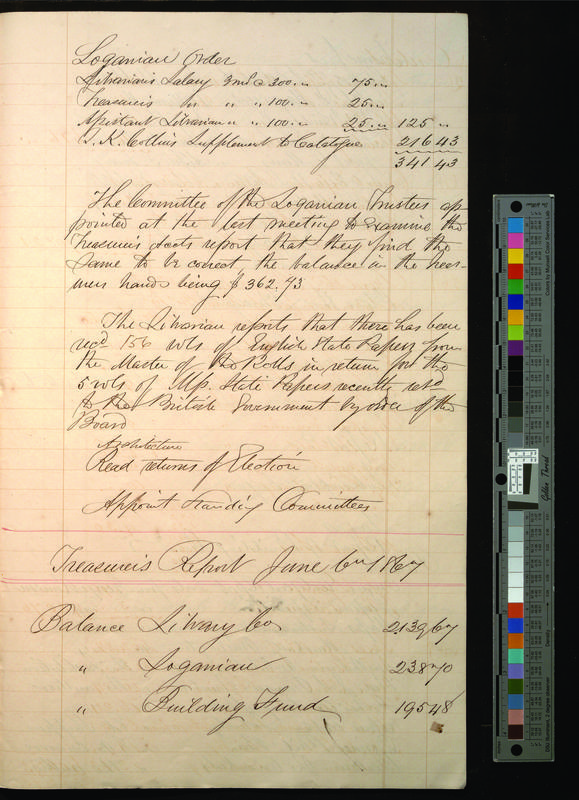 Loganian Order
Librarian's Salary 3 mos @ 300.. 75..
Treasurer's Do " " 100.. 25..
Assistant Librarian " " 100.. 25.. 125..
T. K. Collins Supplement to Catalogue 216 43
341 43
The Committee of the Loganian Trustees ap-
pointed at the last meeting to examine the
Treasurer's accts report that they find the
same to be correct the balance in the Treas-
urers hands being $362.93
The Librarian reports that there has been
recd 156 vols of English State Papers from
the Master of the Rolls in return for the
5 vols of Mss. State Papers recently retd
to the British Government by order of the
Board
Architecture
Read returns of Election
Appoint Standing Committees
Treasurer's Report June 6th 1867
Balance Library Co 2139 67
" Loganian 238 70
" Building Fund 195 48